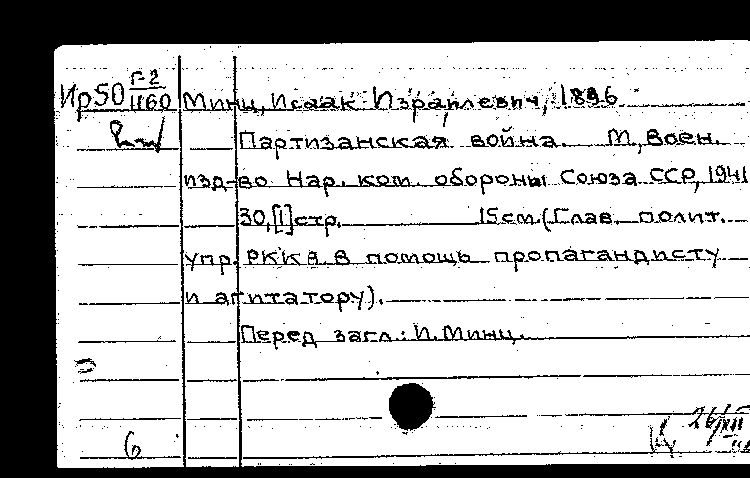 Ир50 Г-2/1160 Минц, Исаак Израилевич, 1896
Партизанская война. М, Воен.
изд-во Нар. ком. обороны Союза ССР, 1941
30,[1]стр. 15см.(Глав. полит.
упр. РККА. В помощь пропагандисту
и агитатору).
Перед загл.: И. Минц.
6
26/XII